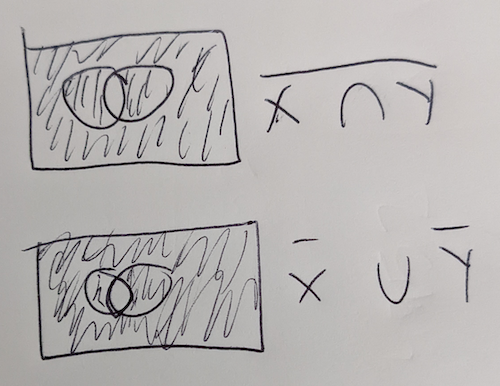 X̅ ̅∩̅ ̅Y̅
X̅ ∪ Y̅